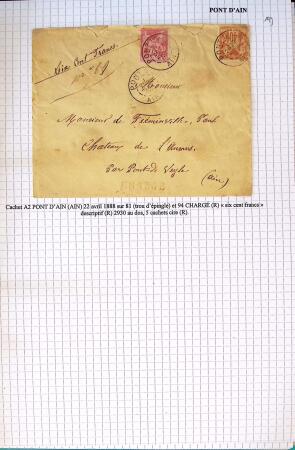 PONT D'AIN
Six Cent Francs.
Monsieur
Monsieur de Fréminville, Paul
Château de l'Aumus
Par Pont de Veyle
(Ain)
Cachet A2 PONT D'AIN (AIN) 22 avril 1888 sur 81 (trou d'épingle) et 94 CHARGÉ (R) « six cent francs »
descriptif (R) 2930 au dos, 5 cachets cire (R).